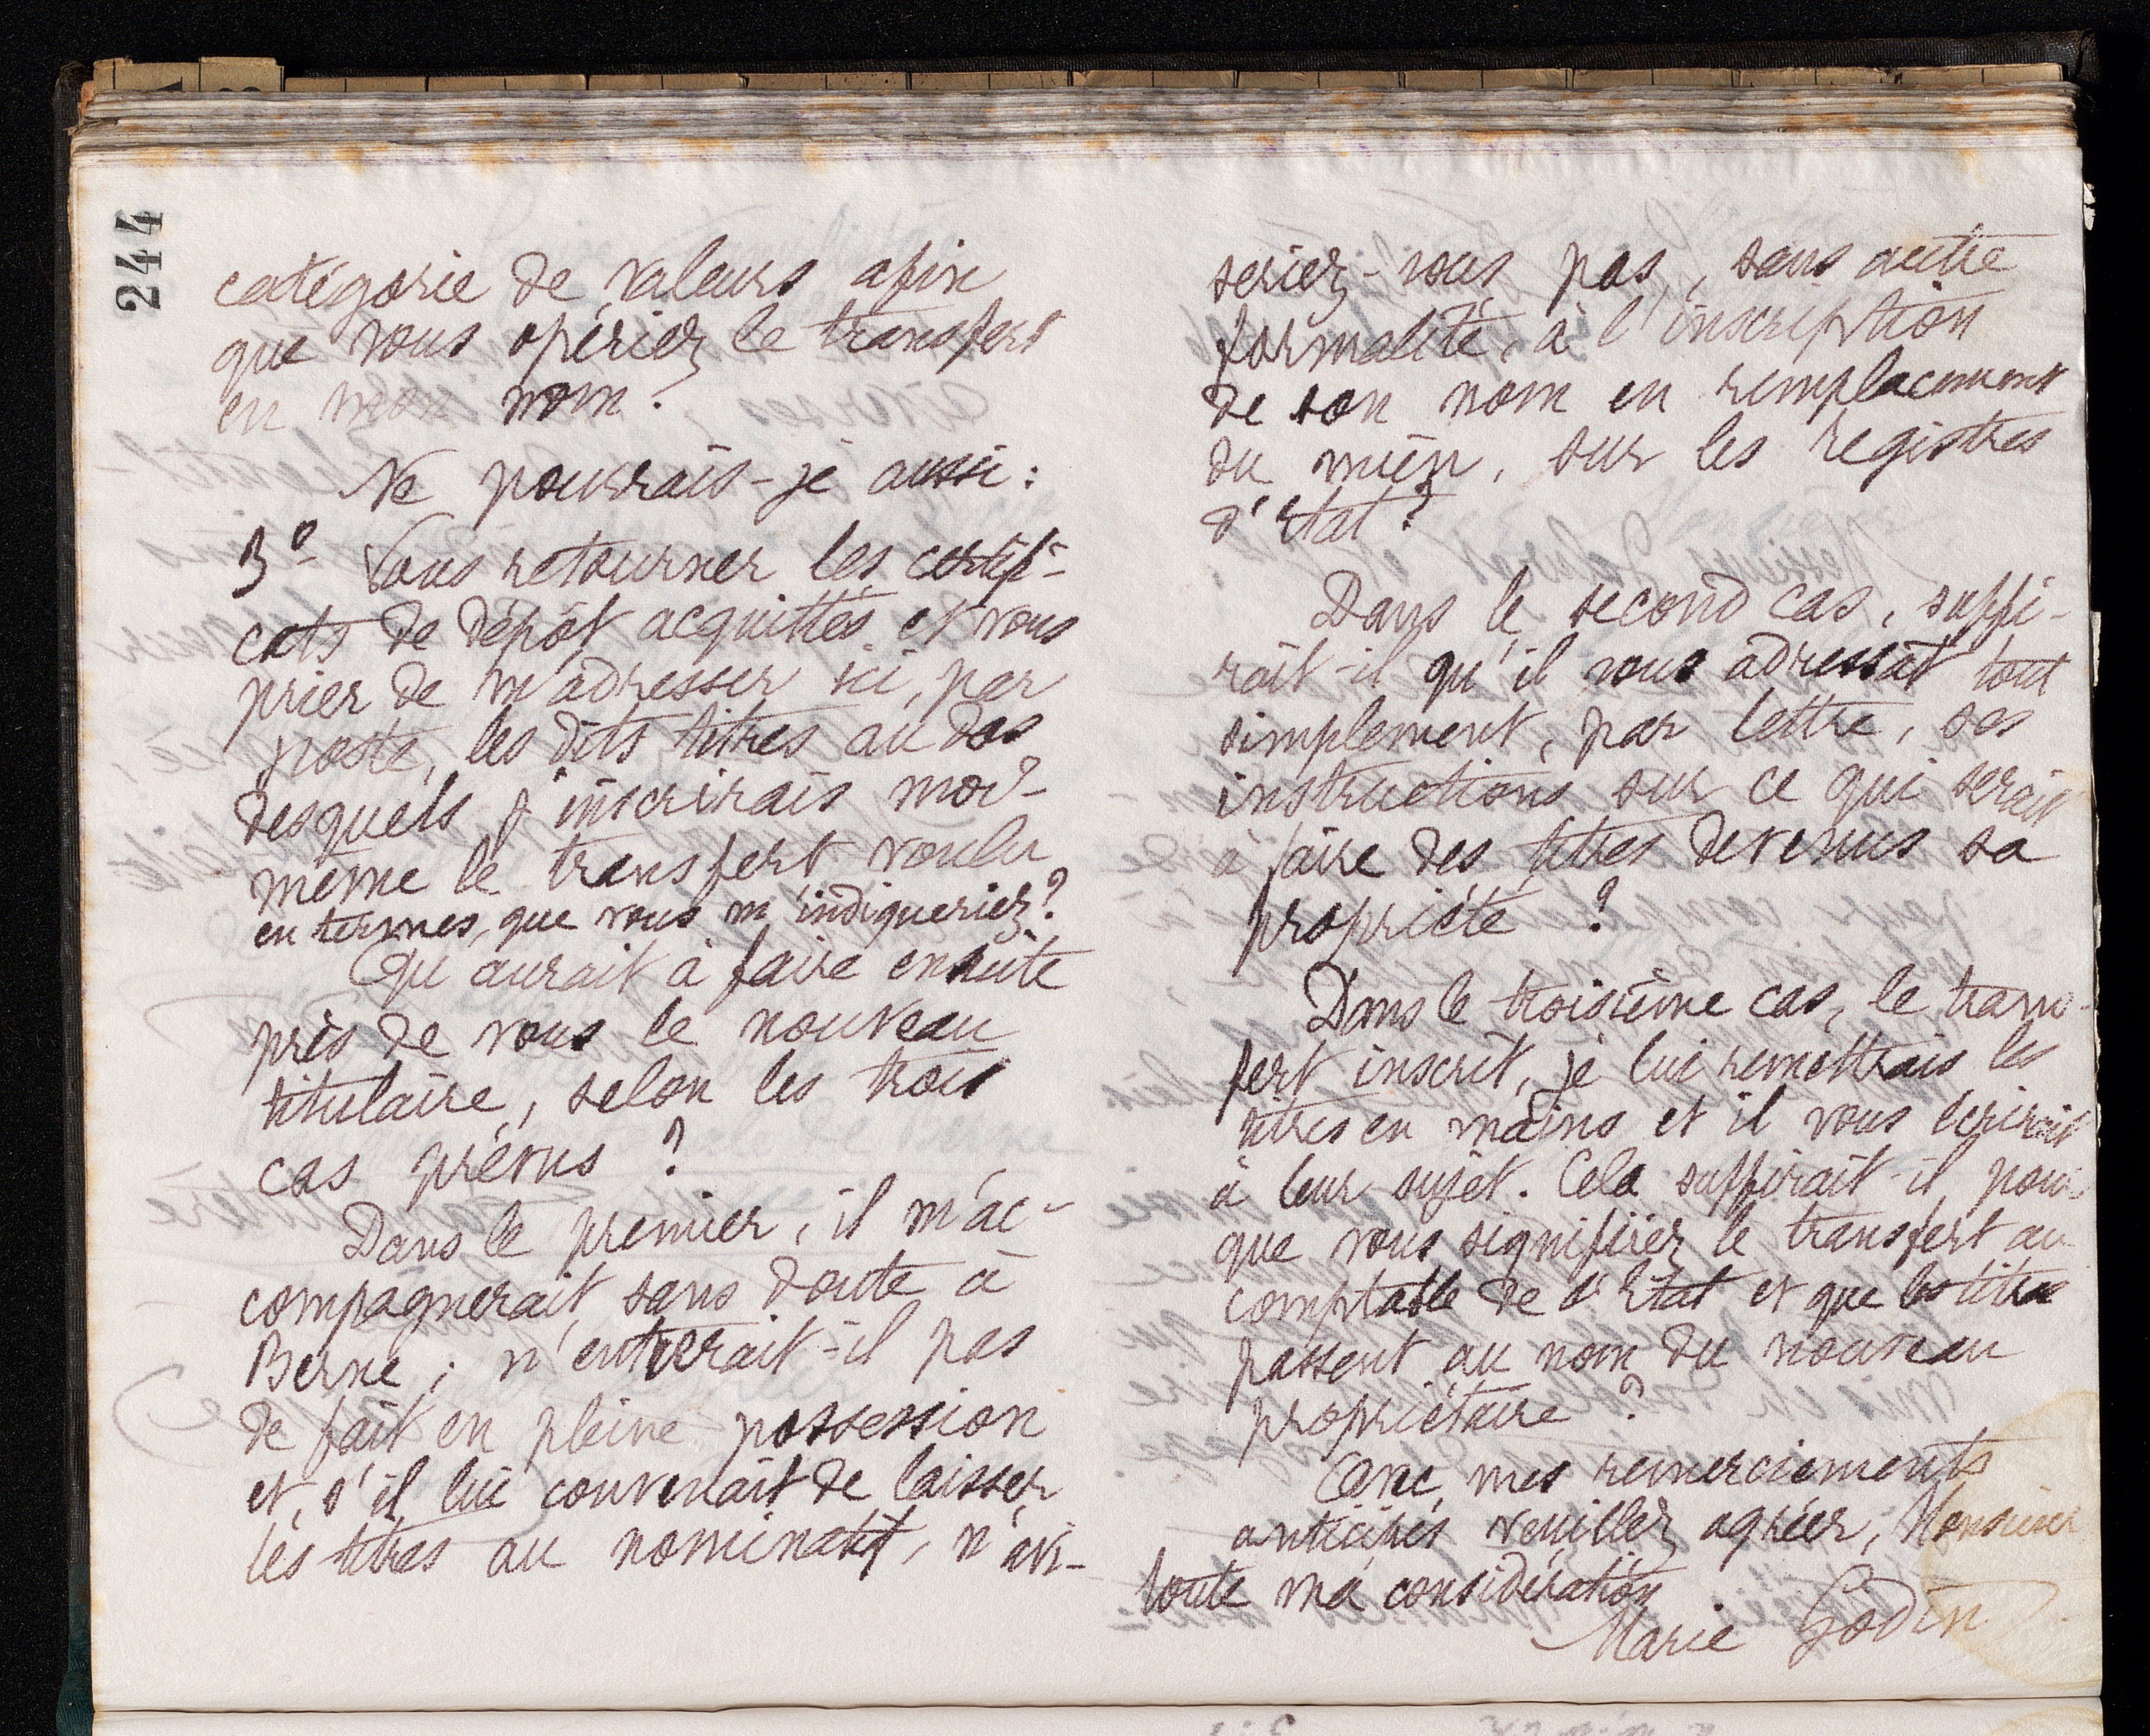 244
catégorie de valeurs afin
que vous opériez le transfert
en mon nom ?
Ne pourrais-je aussi :
3º Vous retourner les certifi-
cats de dépôt acquittés et vous
prier de m'adresser ici, par
poste, les dits titres au dos
desquels j'inscrirais moi-
même le transfert voulu
en termes, que vous m'indiqueriez ?
Qu'aurait à faire ensuite
près de vous le nouveau
titulaire, selon les trois
cas prévus ?
Dans le premier, il m'ac-
compagnerait sans doute à
Berne ; n'entrerait-il pas
de fait en pleine possession
et, s'il lui convenait de laisser
les titres au nominatif, n'avi-
seriez-vous pas, sans autre
formalité, à l'inscription
de son nom en remplacement
du mien, sur les registres
d'Etat ?
Dans le second cas, suffi-
rait-il qu'il vous adressât tout
simplement, par lettre, ses
instructions sur ce qui serait
à faire des titres devenus sa
propriété ?
Dans le troisième cas, le trans-
fert inscrit, je lui remettrais les
titres en mains et il vous écrirait
à leur sujet. Cela suffirait-il, pour
que vous signifiiez le transfert au
comptable de l'Etat et que les titres
passent au nom du nouveau
propriétaire ?
Avec mes remerciements
anticipés veuillez agréer, Monsieur
toute ma considération
Marie Godin